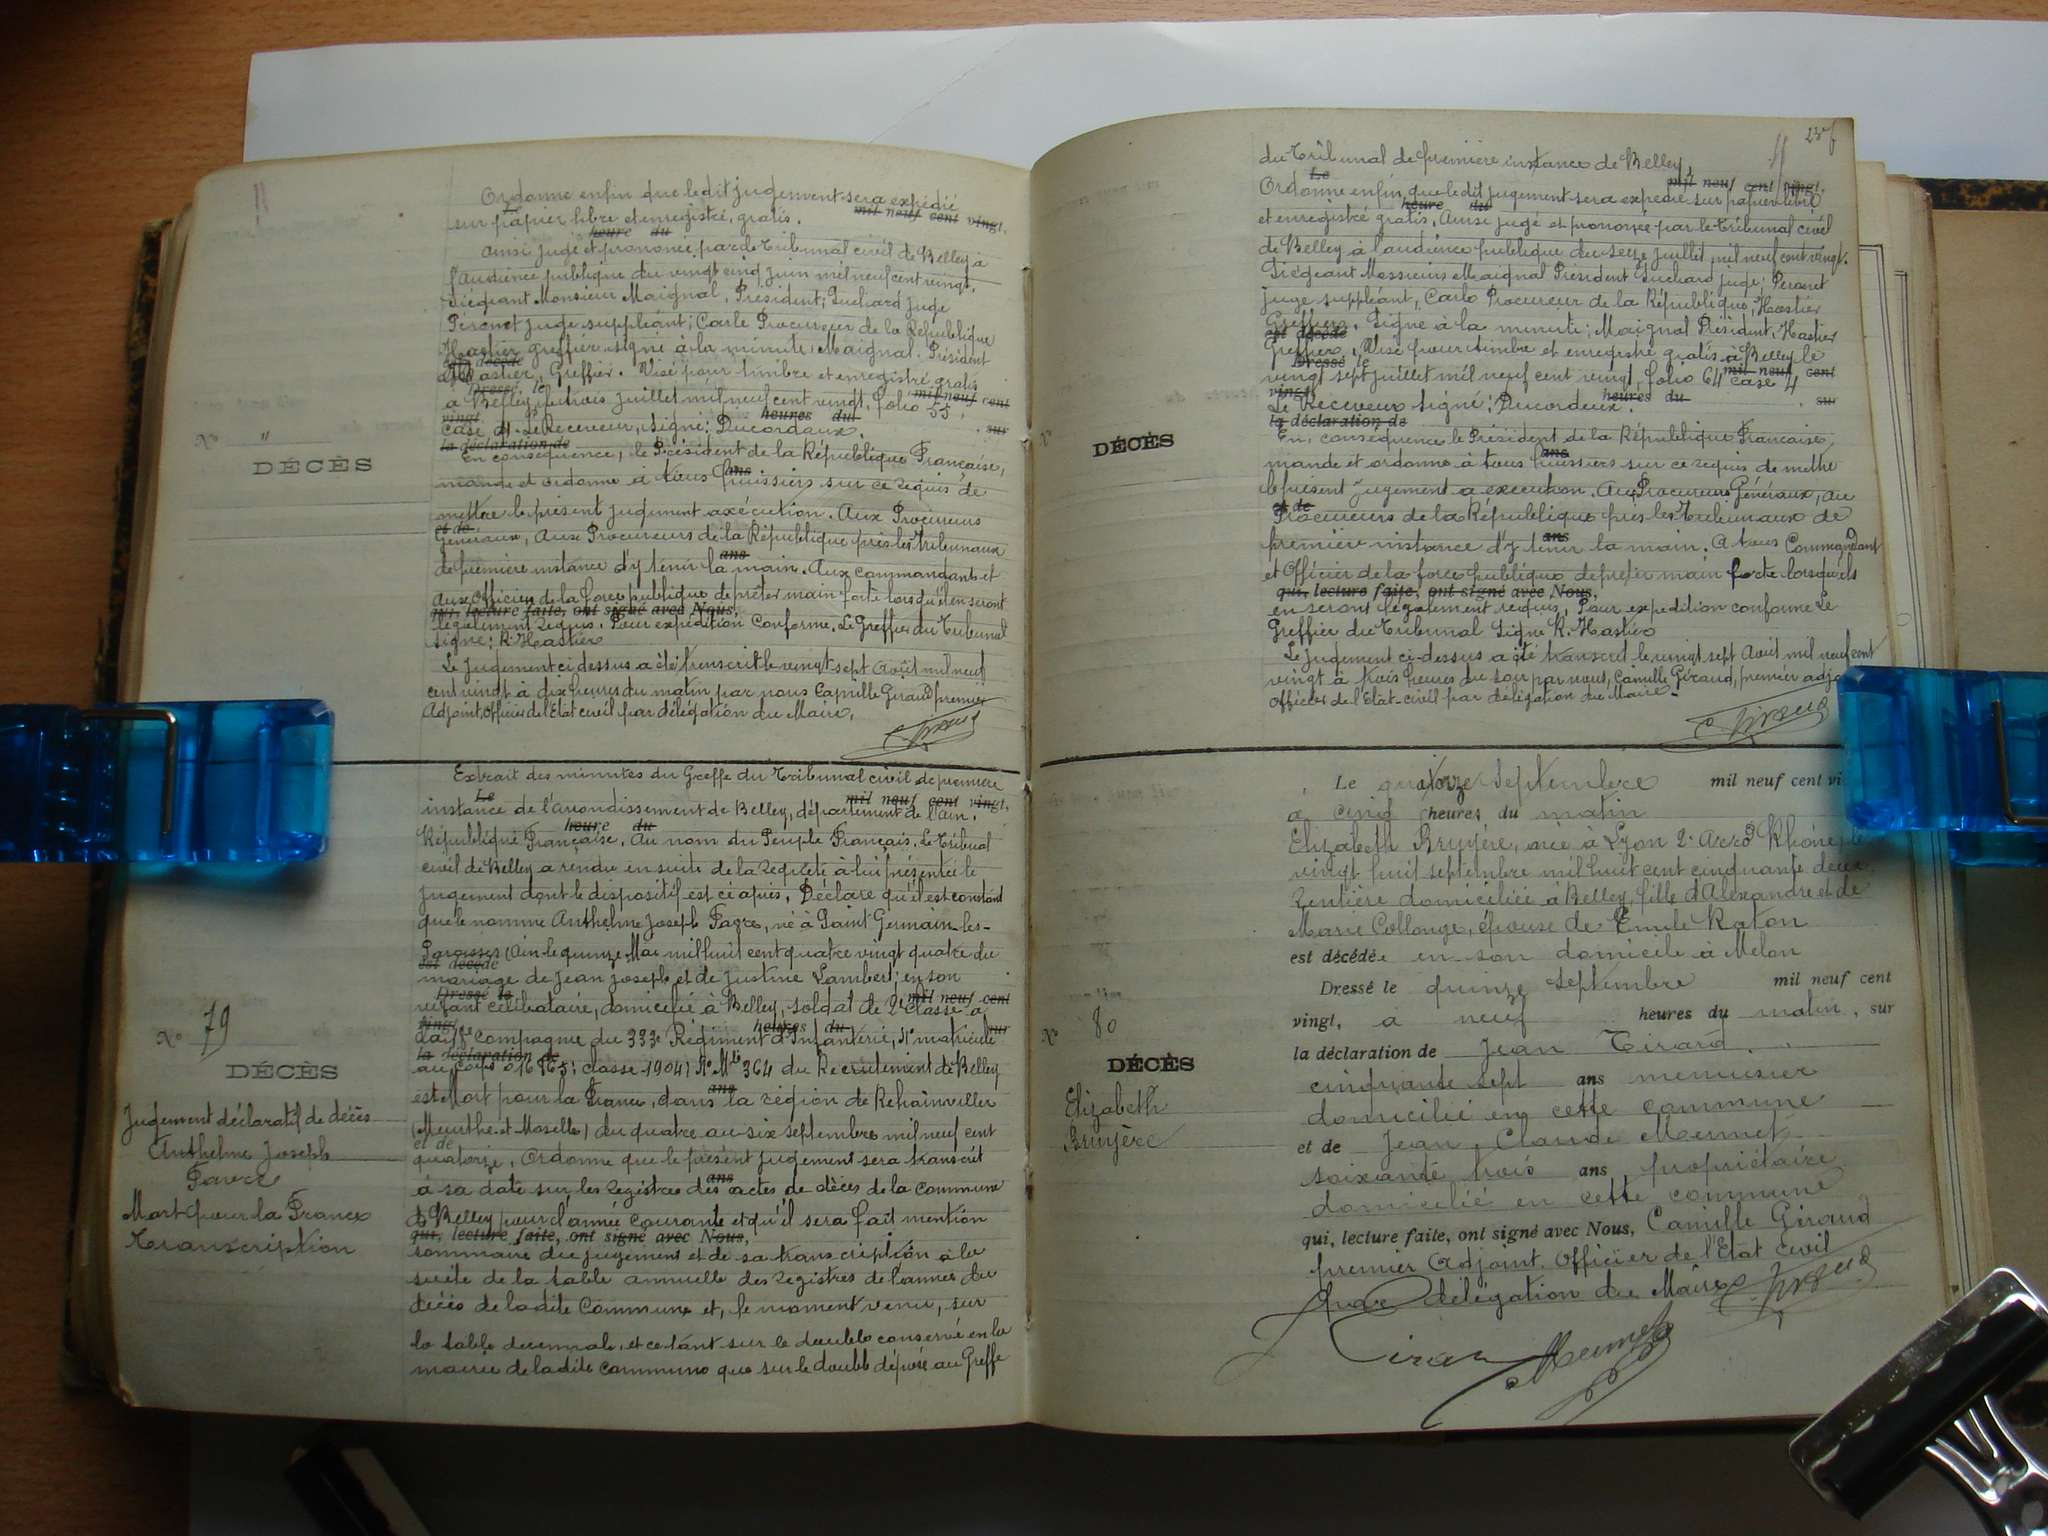 Ordonne enfin que ledit jugement sera expédié
mil neuf cent vingt,
sur papier libre et enregistré, gratis.
heure du
Ainsi jugé et prononcé par le Tribunal civil de Belley à
l'audience publique du vingt cinq juin mil neuf cent vingt.
Siégeant Monsieur Maignal, Président; Guchard juge
Péronet juge suppléant; Carle Procureur de la République
Hastier greffier signé à la minute: Maignal. Président
est décédé
Hastier, Greffier. Visé pour timbre et enregistré gratis
Dressé le mil neuf cent
à Belley, le trois juillet mil neuf cent vingt, folio 55,
vingt heures du sur
case 4. Le Receveur, signé: Ducordaux.
la déclaration de
N° "
DÉCÈS
En conséquence, le Président de la République Française,
ans
mande et ordonne à tous huissiers sur ce requis de
mettre le présent jugement à exécution. Aux Procureurs
et de
Généraux, Aux Procureurs de la République près les Tribunaux
ans
de première instance d'y tenir la main. Aux commandants et
aux Officiers de la force publique de prêter main forte lorsqu'ils en seront
qui, lecture faite, ont signé avec Nous,
légalement requis. Pour expédition conforme. Le Greffier du Tribunal
signé: R. Hastier
Le jugement ci dessus a été transcrit le vingt sept Août mil neuf
cent vingt à dix heures du matin par nous Camille Giraud premier
Adjoint, Officier de l'Etat civil par délégation du Maire.
C. Giraud
Extrait des minutes du Greffe du Tribunal civil de première
Le mil neuf cent vingt,
instance de l'arrondissement de Belley, département de l'Ain.
heure du
République Française. Au nom du Peuple Français. Le Tribunal
civil de Belley a rendu en suite de la requête à lui présentée le
jugement dont le dispositif est ci après. Déclare qu'il est constant
que le nommé Anthelme Joseph Favre, né à Saint Germain-les-
Paroisses (Ain) le quinze Mai mil huit cent quatre vingt quatre du
est décédé
mariage de Jean Joseph et de Justine Lambert, en son
Dressé le mil neuf cent
vivant célibataire, domicilié à Belley, soldat de 2e classe à
vingt heures du sur
la compagnie du 333e Régiment d'Infanterie, N° matricule
la déclaration de
au corps classe 1904, N° Mle 364 du Recrutement de Belley
ans
est Mort pour la France, dans la région de Rehainviller
(Meurthe et Moselle) du quatre au six septembre mil neuf cent
et de
quatorze. Ordonne que le présent jugement sera transcrit
ans
à sa date sur les registres des actes de décès de la commune
de Belley pour l'année courante et qu'il sera fait mention
qui, lecture faite, ont signé avec Nous,
sommaire du jugement et de sa transcription à la
suite de la table annuelle des registres de l'année du
décès de ladite Commune et, le moment venu, sur
la table décennale, et ce tant sur le double conservé en la
mairie de ladite commune que sur le double déposé au Greffe
N° 79
DÉCÈS
Jugement déclaratif de décès
Anthelme Joseph
Favre
Mort pour la France
Transcription
du Tribunal de première instance de Belley,
Le mil neuf cent vingt,
Ordonne enfin que le dit jugement sera expédié sur papier libre
heure du
et enregistré gratis. Ainsi jugé et prononcé par le Tribunal civil
de Belley à l'audience publique du seize juillet mil neuf cent vingt.
Siégeant Messieurs Maignal Président Guchard juge, Péronet
juge suppléant, Carle Procureur de la République, Hastier
Greffier. Signé à la minute: Maignal Président, Hastier
est décédé
Greffier. Visé pour timbre et enregistré gratis à Belley le
Dressé le mil neuf cent
vingt sept juillet mil neuf cent vingt, folio 64 case 4
vingt heures du sur
Le Receveur signé: Ducordeux.
la déclaration de
DÉCÈS
En conséquence le Président de la République Française
ans
mande et ordonne à tous huissiers sur ce requis de mettre
le présent jugement à exécution. Aux Procureurs Généraux, au
et de
Procureurs de la République près les Tribunaux de
ans
première instance d'y tenir la main. A tous Commandant
et Officier de la force publique de prêter main forte lorsqu'ils
qui, lecture faite, ont signé avec Nous,
en seront légalement requis. Pour expédition conforme Le
Greffier du Tribunal Signé R. Hastier
Le jugement ci-dessus a été transcrit le vingt sept Août mil neuf cent
vingt à trois heures du soir par nous, Camille Giraud, premier adjo
Officier de l'Etat-civil par délégation du Maire.
C. Giraud
Le quatorze septembre mil neuf cent vi
à cinq heures du matin
Elizabeth Bruyère, née à Lyon 2e Arrd Rhône, le
vingt huit septembre mil huit cent cinquante deux
Rentière domiciliée à Belley, fille d'Alexandre et de
Marie Collonge, épouse de Emile Raton
est décédée en son domicile à Melon
Dressé le quinze septembre mil neuf cent
vingt, à neuf heures du matin, sur
la déclaration de Jean Tirard
cinquante sept ans menuisier
domicilié en cette commune
et de Jean Claude Mermet
soixante trois ans propriétaire
domicilié en cette commune
qui, lecture faite, ont signé avec Nous, Camille Giraud
premier Adjoint, Officier de l'Etat Civil
par délégation du Maire C. Giraud
Tirard Mermet
N° 80
DÉCÈS
Elizabeth
Bruyère